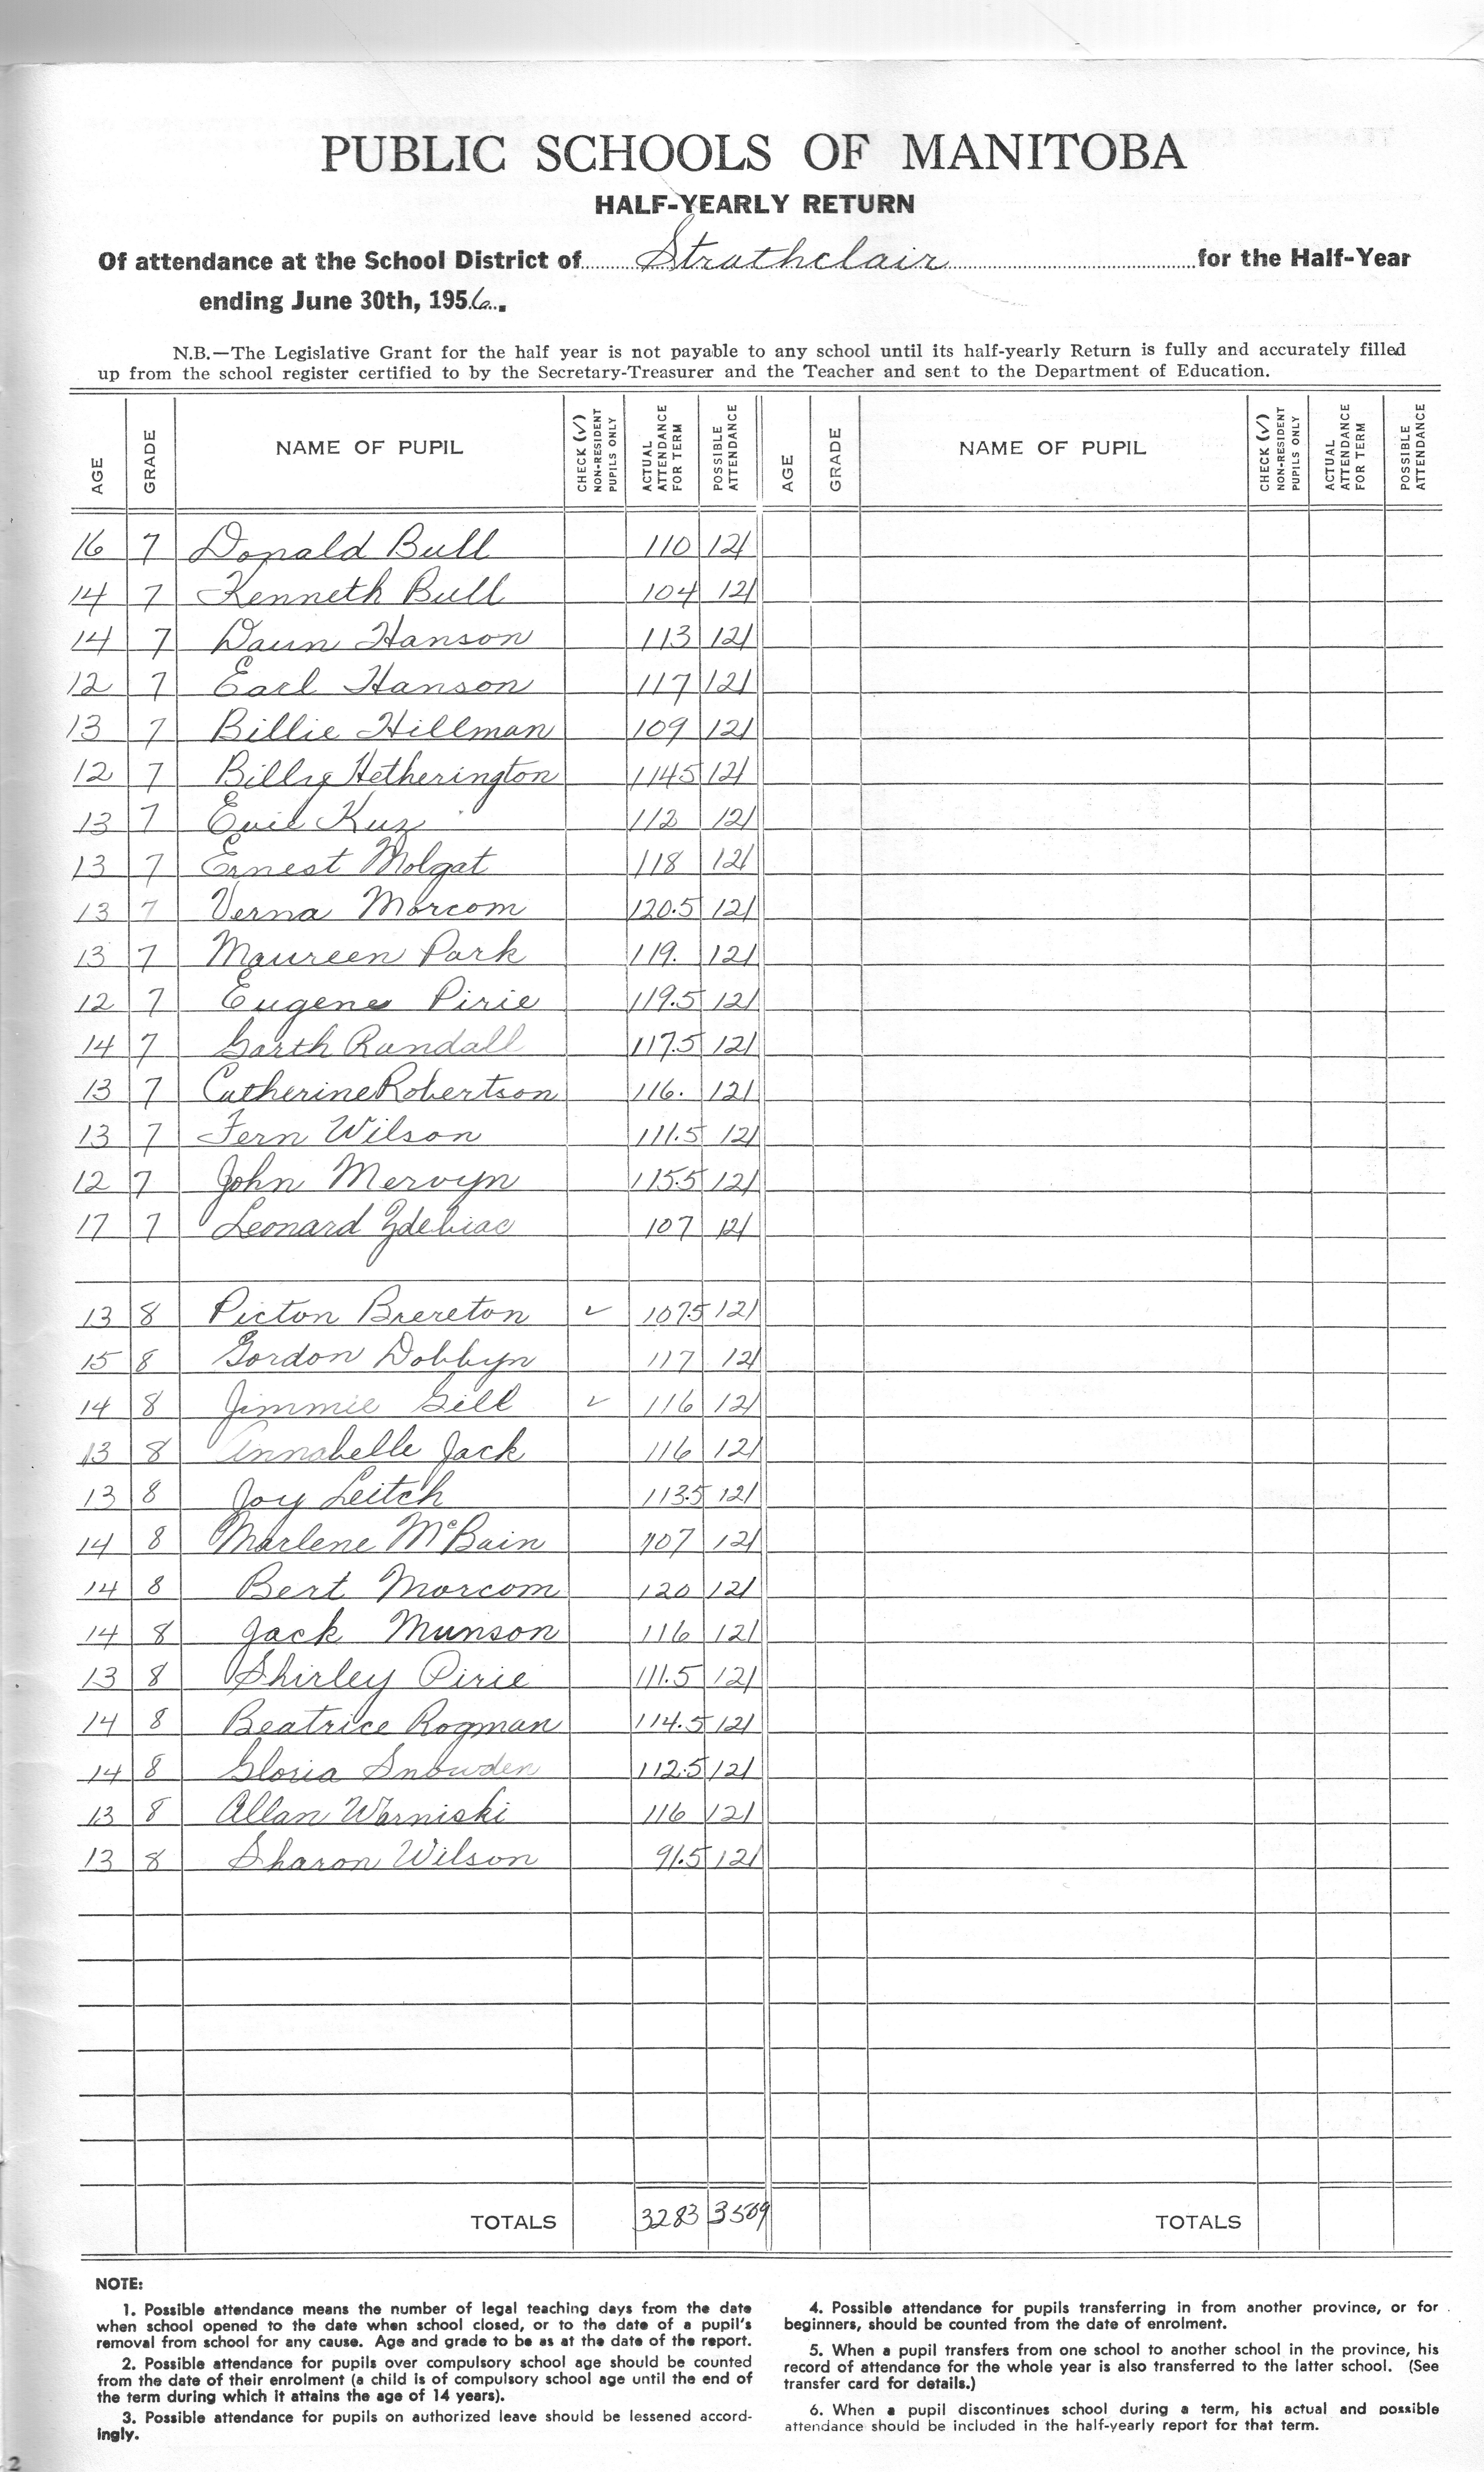 PUBLIC SCHOOLS OF MANITOBA
HALF-YEARLY RETURN
Of attendance at the School District of Strathclair for the Half-Year
ending June 30th, 1956.
N.B.—The Legislative Grant for the half year is not payable to any school until its half-yearly Return is fully and accurately filled
up from the school register certified to by the Secretary-Treasurer and the Teacher and sent to the Department of Education.
AGE GRADE NAME OF PUPIL CHECK (✓) NON-RESIDENT PUPILS ONLY ACTUAL ATTENDANCE FOR TERM POSSIBLE ATTENDANCE AGE GRADE NAME OF PUPIL CHECK (✓) NON-RESIDENT PUPILS ONLY ACTUAL ATTENDANCE FOR TERM POSSIBLE ATTENDANCE
16 7 Donald Bull 110 121
14 7 Kenneth Bull 104 121
14 7 Daun Hanson 113 121
12 7 Earl Hanson 117 121
13 7 Billie Hillman 109 121
12 7 Billy Hetherington 114.5 121
13 7 Kuz 112 121
13 7 Ernest Molgat 118 121
13 7 Verna Morcom 120.5 121
13 7 Maureen Park 119. 121
12 7 Eugene Pirie 119.5 121
14 7 Garth Randall 117.5 121
13 7 Catherine Robertson 116. 121
13 7 Fern Wilson 111.5 121
12 7 John Mervyn 115.5 121
17 7 Leonard Zdebiac 107 121
13 8 Picton Brereton ✓ 107.5 121
15 8 Gordon Dobbyn 117 121
14 8 Jimmie Gill ✓ 116 121
13 8 Annabelle Jack 116 121
13 8 Joy Leitch 113.5 121
14 8 Marlene McBain 107 121
14 8 Bert Morcom 120 121
14 8 Jack Munson 116 121
13 8 Shirley Pirie 111.5 121
14 8 Beatrice Rogman 114.5 121
14 8 Gloria Snowden 112.5 121
13 8 Allan Warniski 116 121
13 8 Sharon Wilson 91.5 121
TOTALS 3283 3509 TOTALS
NOTE:
1. Possible attendance means the number of legal teaching days from the date
when school opened to the date when school closed, or to the date of a pupil's
removal from school for any cause. Age and grade to be as at the date of the report.
2. Possible attendance for pupils over compulsory school age should be counted
from the date of their enrolment (a child is of compulsory school age until the end of
the term during which it attains the age of 14 years).
3. Possible attendance for pupils on authorized leave should be lessened accord-
ingly.
4. Possible attendance for pupils transferring in from another province, or for
beginners, should be counted from the date of enrolment.
5. When a pupil transfers from one school to another school in the province, his
record of attendance for the whole year is also transferred to the latter school. (See
transfer card for details.)
6. When a pupil discontinues school during a term, his actual and possible
attendance should be included in the half-yearly report for that term.
2